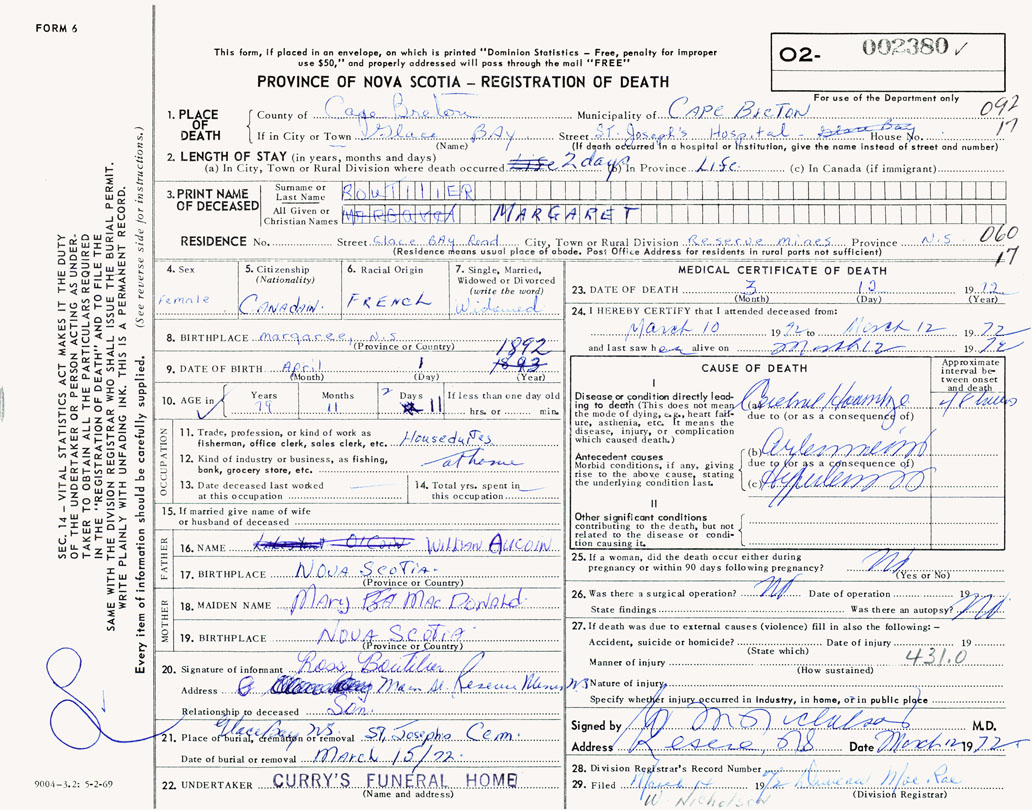 FORM 6
This form, if placed in an envelope, on which is printed "Dominion Statistics – Free, penalty for improper
use $50," and properly addressed will pass through the mail "FREE"
PROVINCE OF NOVA SCOTIA – REGISTRATION OF DEATH
O2- 002380 ✓
For use of the Department only
092
17
1. PLACE OF DEATH
County of Cape Breton Municipality of CAPE BRETON
If in City or Town Glace BAY Street ST. Joseph's Hospital - Glace Bay House No.
(Name) (If death occurred in a hospital or Institution, give the name instead of street and number)
2. LENGTH OF STAY (in years, months and days)
(a) In City, Town or Rural Division where death occurred Life 2 days (b) In Province Life (c) In Canada (if immigrant)
3. PRINT NAME OF DECEASED
Surname or Last Name BOUTILIER
All Given or Christian Names MARGARET MARGARET
RESIDENCE No. Street Glace BAy Road City, Town or Rural Division Reserve mines Province N.S
(Residence means usual place of abode. Post Office Address for residents in rural parts not sufficient)
060
17
4. Sex Female
5. Citizenship (Nationality) CANADAIN.
6. Racial Origin FRENCH
7. Single, Married, Widowed or Divorced (write the word) Widowed
8. BIRTHPLACE margaree, N.S.
(Province or Country)
1892
9. DATE OF BIRTH April 1 1893
(Month) (Day) (Year)
10. AGE in ✓ Years 79 Months 11 Days 11 If less than one day old hrs. or min.
OCCUPATION
11. Trade, profession, or kind of work as fisherman, office clerk, sales clerk, etc. Housedutes
12. Kind of industry or business, as fishing, bank, grocery store, etc. at home
13. Date deceased last worked at this occupation
14. Total yrs. spent in this occupation
15. If married give name of wife or husband of deceased
FATHER
16. NAME WILLIAM AUCOIN
17. BIRTHPLACE NOVA SCOTIA.
(Province or Country)
MOTHER
18. MAIDEN NAME Mary MacDonald
19. BIRTHPLACE NOVA SCOTIA.
(Province or Country)
20. Signature of informant Ross Boutilier
Address Main St. Reserve Mines NS
Relationship to deceased Son.
Glace Bay NS.
21. Place of burial, cremation or removal ST, Josephs Cem.
Date of burial or removal MARCH 15/72.
22. UNDERTAKER CURRY'S FUNERAL HOME
(Name and address)
MEDICAL CERTIFICATE OF DEATH
23. DATE OF DEATH 3 12 1972
(Month) (Day) (Year)
24. I HEREBY CERTIFY that I attended deceased from:
March 10 1972 to March 12 1972
and last saw her alive on March 12 1972
CAUSE OF DEATH
Approximate interval between onset and death
I
Disease or condition directly leading to death (This does not mean the mode of dying, e.g., heart failure, asthenia, etc. It means the disease, injury, or complication which caused death.)
(a)
due to (or as a consequence of)
Antecedent causes
Morbid conditions, if any, giving rise to the above cause, stating the underlying condition last.
(b)
due to (or as a consequence of)
(c)
II
Other significant conditions contributing to the death, but not related to the disease or condition causing it.
25. If a woman, did the death occur either during pregnancy or within 90 days following pregnancy? No
(Yes or No)
26. Was there a surgical operation? No Date of operation 19
State findings Was there an autopsy? No
27. If death was due to external causes (violence) fill in also the following: –
Accident, suicide or homicide? Date of injury 19
(State which)
431.0
Manner of injury
(How sustained)
Nature of injury
Specify whether injury occurred in Industry, in home, or in public place
Signed by M.D.
Address Reserve, NS Date March 12 1972
28. Division Registrar's Record Number
29. Filed March 14 19
(Division Registrar)
W. Nicholson
SEC. 14 – VITAL STATISTICS ACT MAKES IT THE DUTY
OF THE UNDERTAKER OR PERSON ACTING AS UNDER-
TAKER TO OBTAIN ALL THE PARTICULARS REQUIRED
IN THE "REGISTRATION OF DEATH" AND TO FILE THE
SAME WITH THE DIVISION REGISTRAR WHO SHALL ISSUE THE BURIAL PERMIT.
WRITE PLAINLY WITH UNFADING INK. THIS IS A PERMANENT RECORD.
Every item of information should be carefully supplied. (See reverse side for instructions.)
9004-3.2: 5-2-69